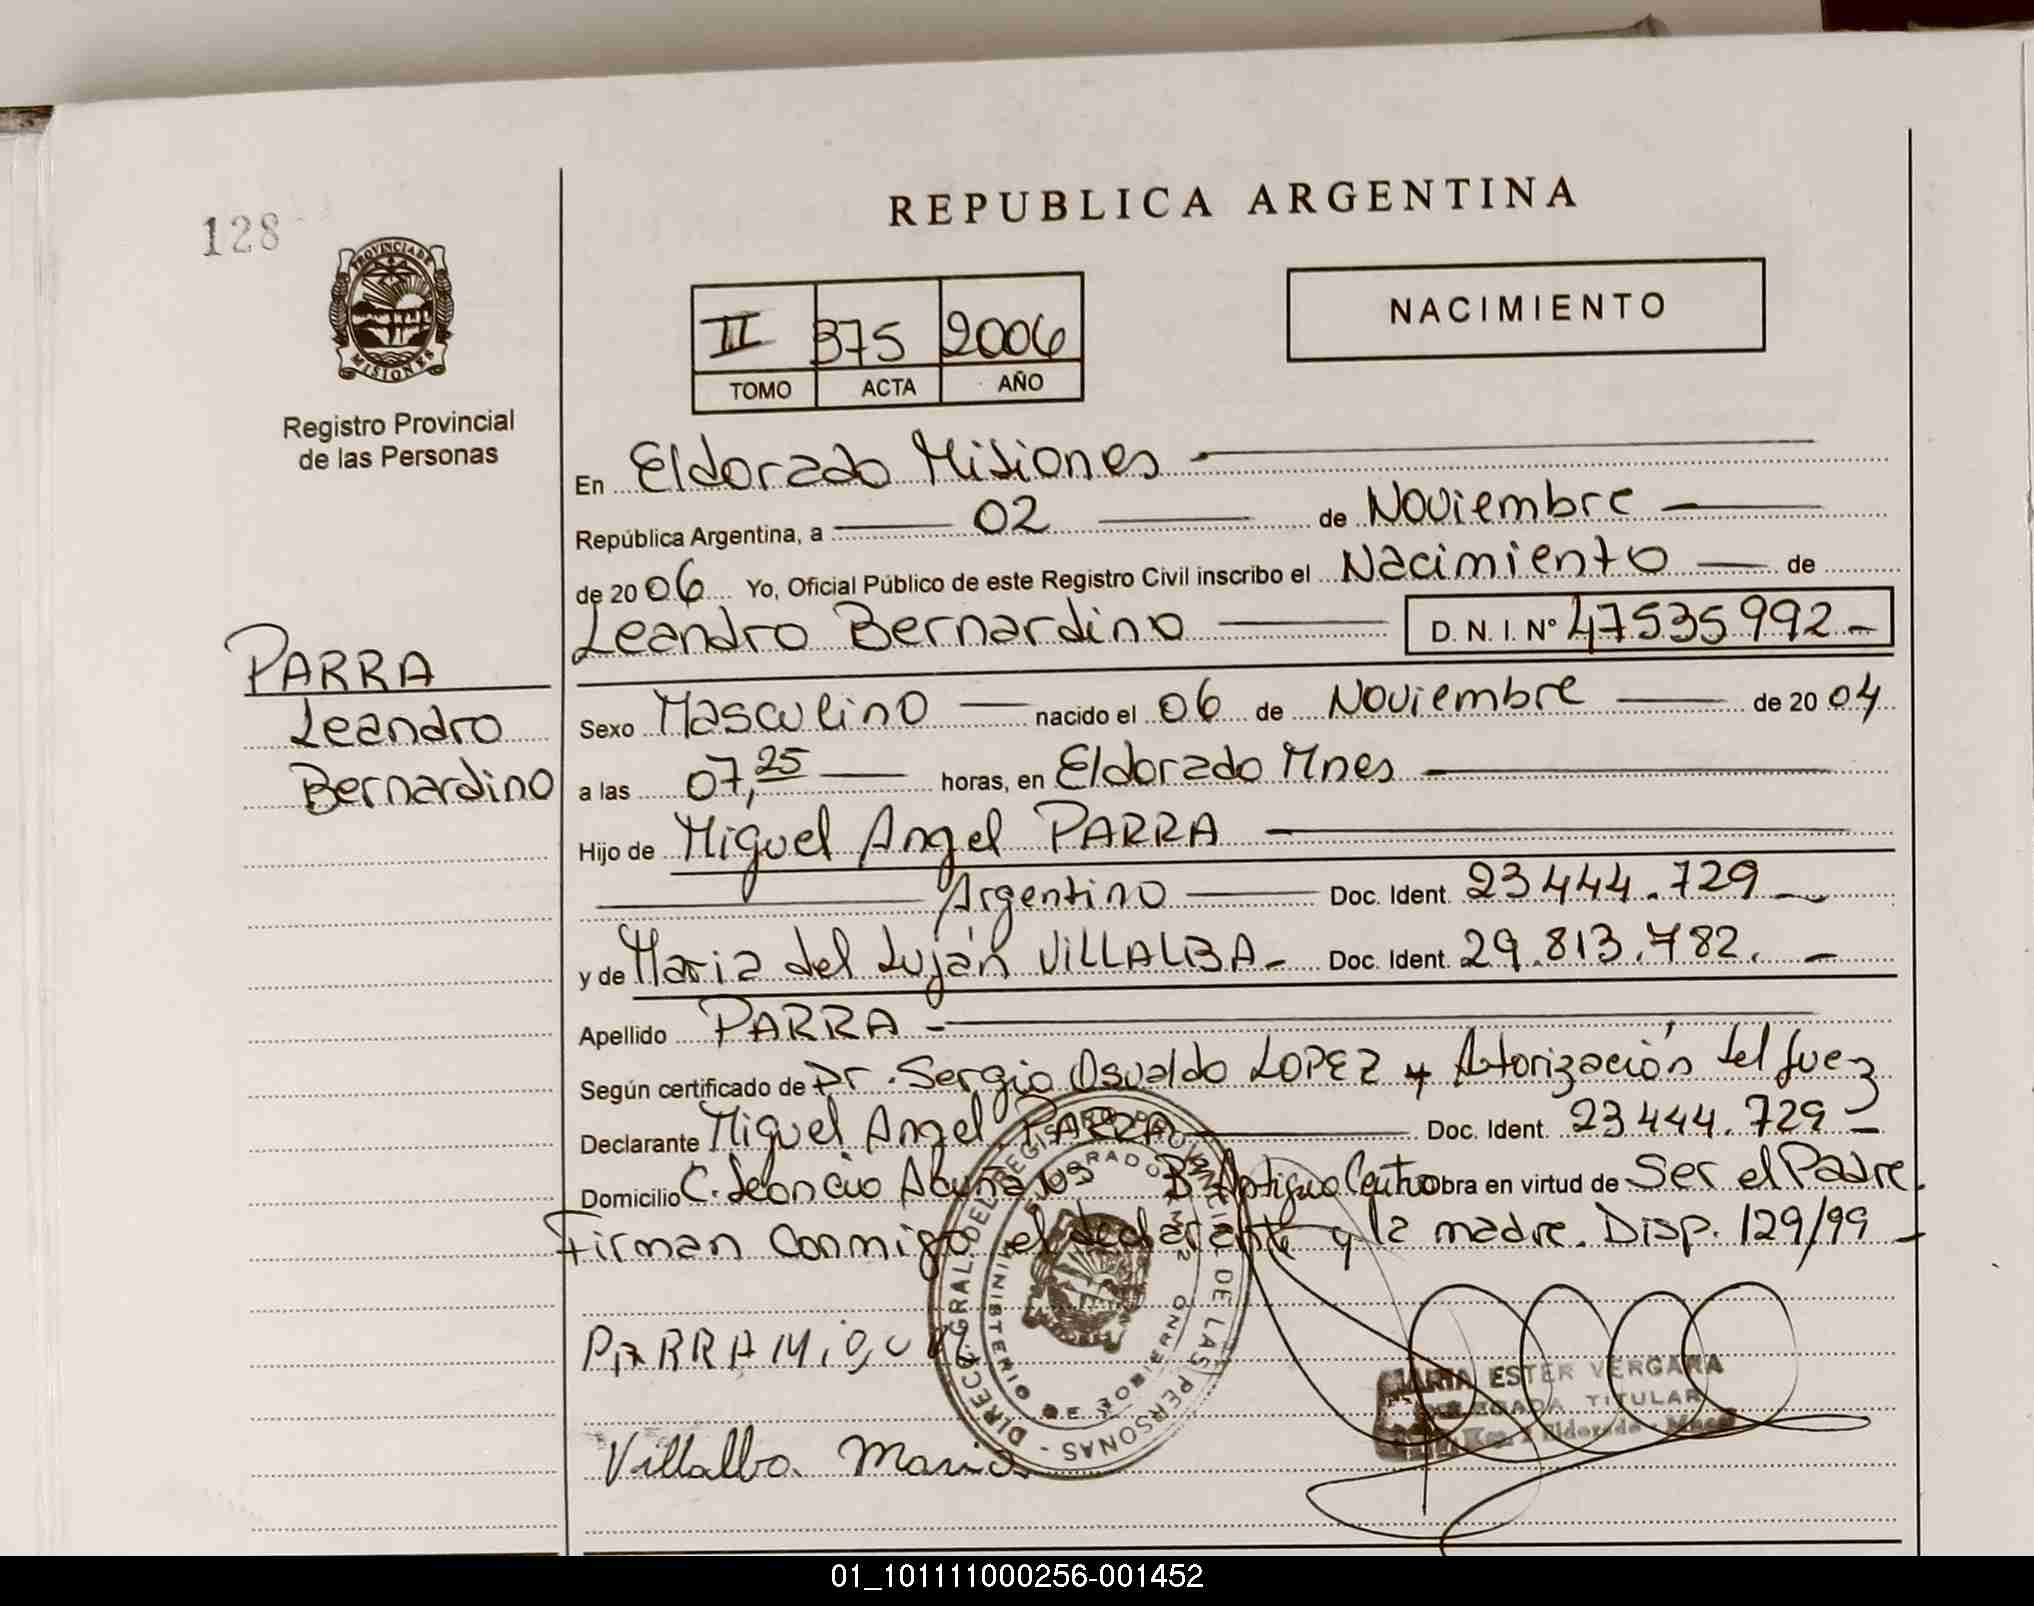 128
PROVINCIA DE
MISIONES
Registro Provincial
de las Personas
REPUBLICA ARGENTINA
II 375 2006
TOMO ACTA AÑO
NACIMIENTO
En Eldorado Misiones
República Argentina, a 02 de Noviembre
de 2006 Yo, Oficial Público de este Registro Civil inscribo el Nacimiento de
Leandro Bernardino D.N.I. Nº 47535992
PARRA
Leandro
Bernardino
Sexo Masculino nacido el 06 de Noviembre de 2004
a las 07,25 horas, en Eldorado Mnes
Hijo de Miguel Angel PARRA
Argentino Doc. Ident. 23444.729
y de Maria del Luján VILLALBA Doc. Ident. 29.813.782.
Apellido PARRA
Según certificado de Dr. Sergio Osvaldo LOPEZ y Autorización del Juez
Declarante Miguel Angel PARRA Doc. Ident. 23444.729
Domicilio C. Leoncio Bº Antiguo Centro obra en virtud de Ser el Padre.
Firman conmigo el declarante y la madre. Disp. 129/99
PARRA MiGUEL
Villalba Maria
DIRECC. GRAL. DEL REGISTRO PROVINCIAL DE LAS PERSONAS
MINISTERIO DE GOBIERNO
MARIA ESTER VERGARA
DELEGADA TITULAR
Eldorado
01_101111000256-001452